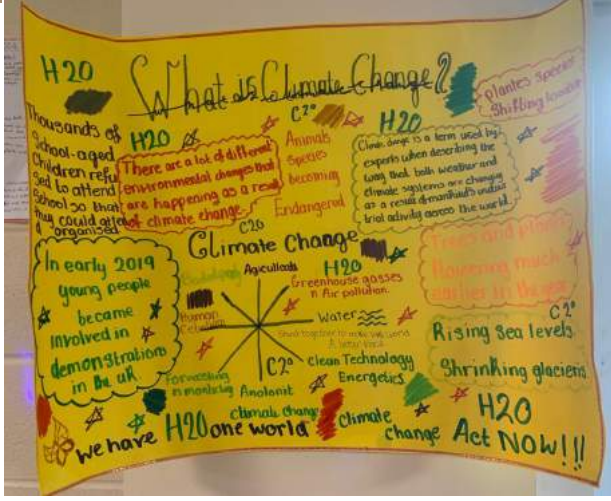 H20
What is Climate Change?
plantes species
Shifting
Thousands of
School-aged
Children refu
sed to attend
School so that
they could atten
d organised
H20
There are a lot of different
environmental changes that
are happening as a resul
of climate change.
C2°
Animals
species
becoming
Endangered
H20
Climate change is a term used by
experts when describing the
way that both weather and
climate systems are changing
as a result of mankind's indus
trial activity across the world.
C20
Climate Change
Trees and plants
flowering much
earlier in the year
In early 2019
young people
became
involved in
demonstrations
in the uk.
Agriculture
H20
Greenhouse gasses
n Air pollution.
Human
Water
Stand together to make this world
A better
C2°
clean Technology
Energetics
climate change
C2°
Rising sea levels
Shrinking glaciers
we have H20 one world
climate
change
H20
Act NOW!!!